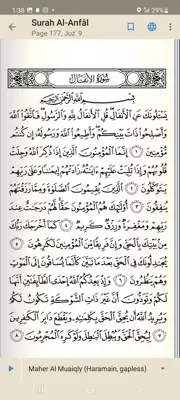 1:38
29%
Surah Al-Anfāl
Page 177, Juz' 9
سُورَةُ الأَنفَالِ
بِسْمِ اللَّهِ الرَّحْمَٰنِ الرَّحِيمِ
يَسْأَلُونَكَ عَنِ الْأَنفَالِ قُلِ الْأَنفَالُ لِلَّهِ وَالرَّسُولِ فَاتَّقُوا اللَّهَ
وَأَصْلِحُوا ذَاتَ بَيْنِكُمْ وَأَطِيعُوا اللَّهَ وَرَسُولَهُ إِن كُنتُم
مُّؤْمِنِينَ ١ إِنَّمَا الْمُؤْمِنُونَ الَّذِينَ إِذَا ذُكِرَ اللَّهُ وَجِلَتْ
قُلُوبُهُمْ وَإِذَا تُلِيَتْ عَلَيْهِمْ آيَاتُهُ زَادَتْهُمْ إِيمَانًا وَعَلَىٰ رَبِّهِمْ
يَتَوَكَّلُونَ ٢ الَّذِينَ يُقِيمُونَ الصَّلَاةَ وَمِمَّا رَزَقْنَاهُمْ
يُنفِقُونَ ٣ أُولَٰئِكَ هُمُ الْمُؤْمِنُونَ حَقًّا لَّهُمْ دَرَجَاتٌ عِندَ
رَبِّهِمْ وَمَغْفِرَةٌ وَرِزْقٌ كَرِيمٌ ٤ كَمَا أَخْرَجَكَ رَبُّكَ
مِن بَيْتِكَ بِالْحَقِّ وَإِنَّ فَرِيقًا مِّنَ الْمُؤْمِنِينَ لَكَارِهُونَ ٥
يُجَادِلُونَكَ فِي الْحَقِّ بَعْدَمَا تَبَيَّنَ كَأَنَّمَا يُسَاقُونَ إِلَى الْمَوْتِ
وَهُمْ يَنظُرُونَ ٦ وَإِذْ يَعِدُكُمُ اللَّهُ إِحْدَى الطَّائِفَتَيْنِ أَنَّهَا
لَكُمْ وَتَوَدُّونَ أَنَّ غَيْرَ ذَاتِ الشَّوْكَةِ تَكُونُ لَكُمْ
وَيُرِيدُ اللَّهُ أَن يُحِقَّ الْحَقَّ بِكَلِمَاتِهِ وَيَقْطَعَ دَابِرَ الْكَافِرِينَ
٧ لِيُحِقَّ الْحَقَّ وَيُبْطِلَ الْبَاطِلَ وَلَوْ كَرِهَ الْمُجْرِمُونَ ٨
Maher Al Muaiqly (Haramain, gapless)